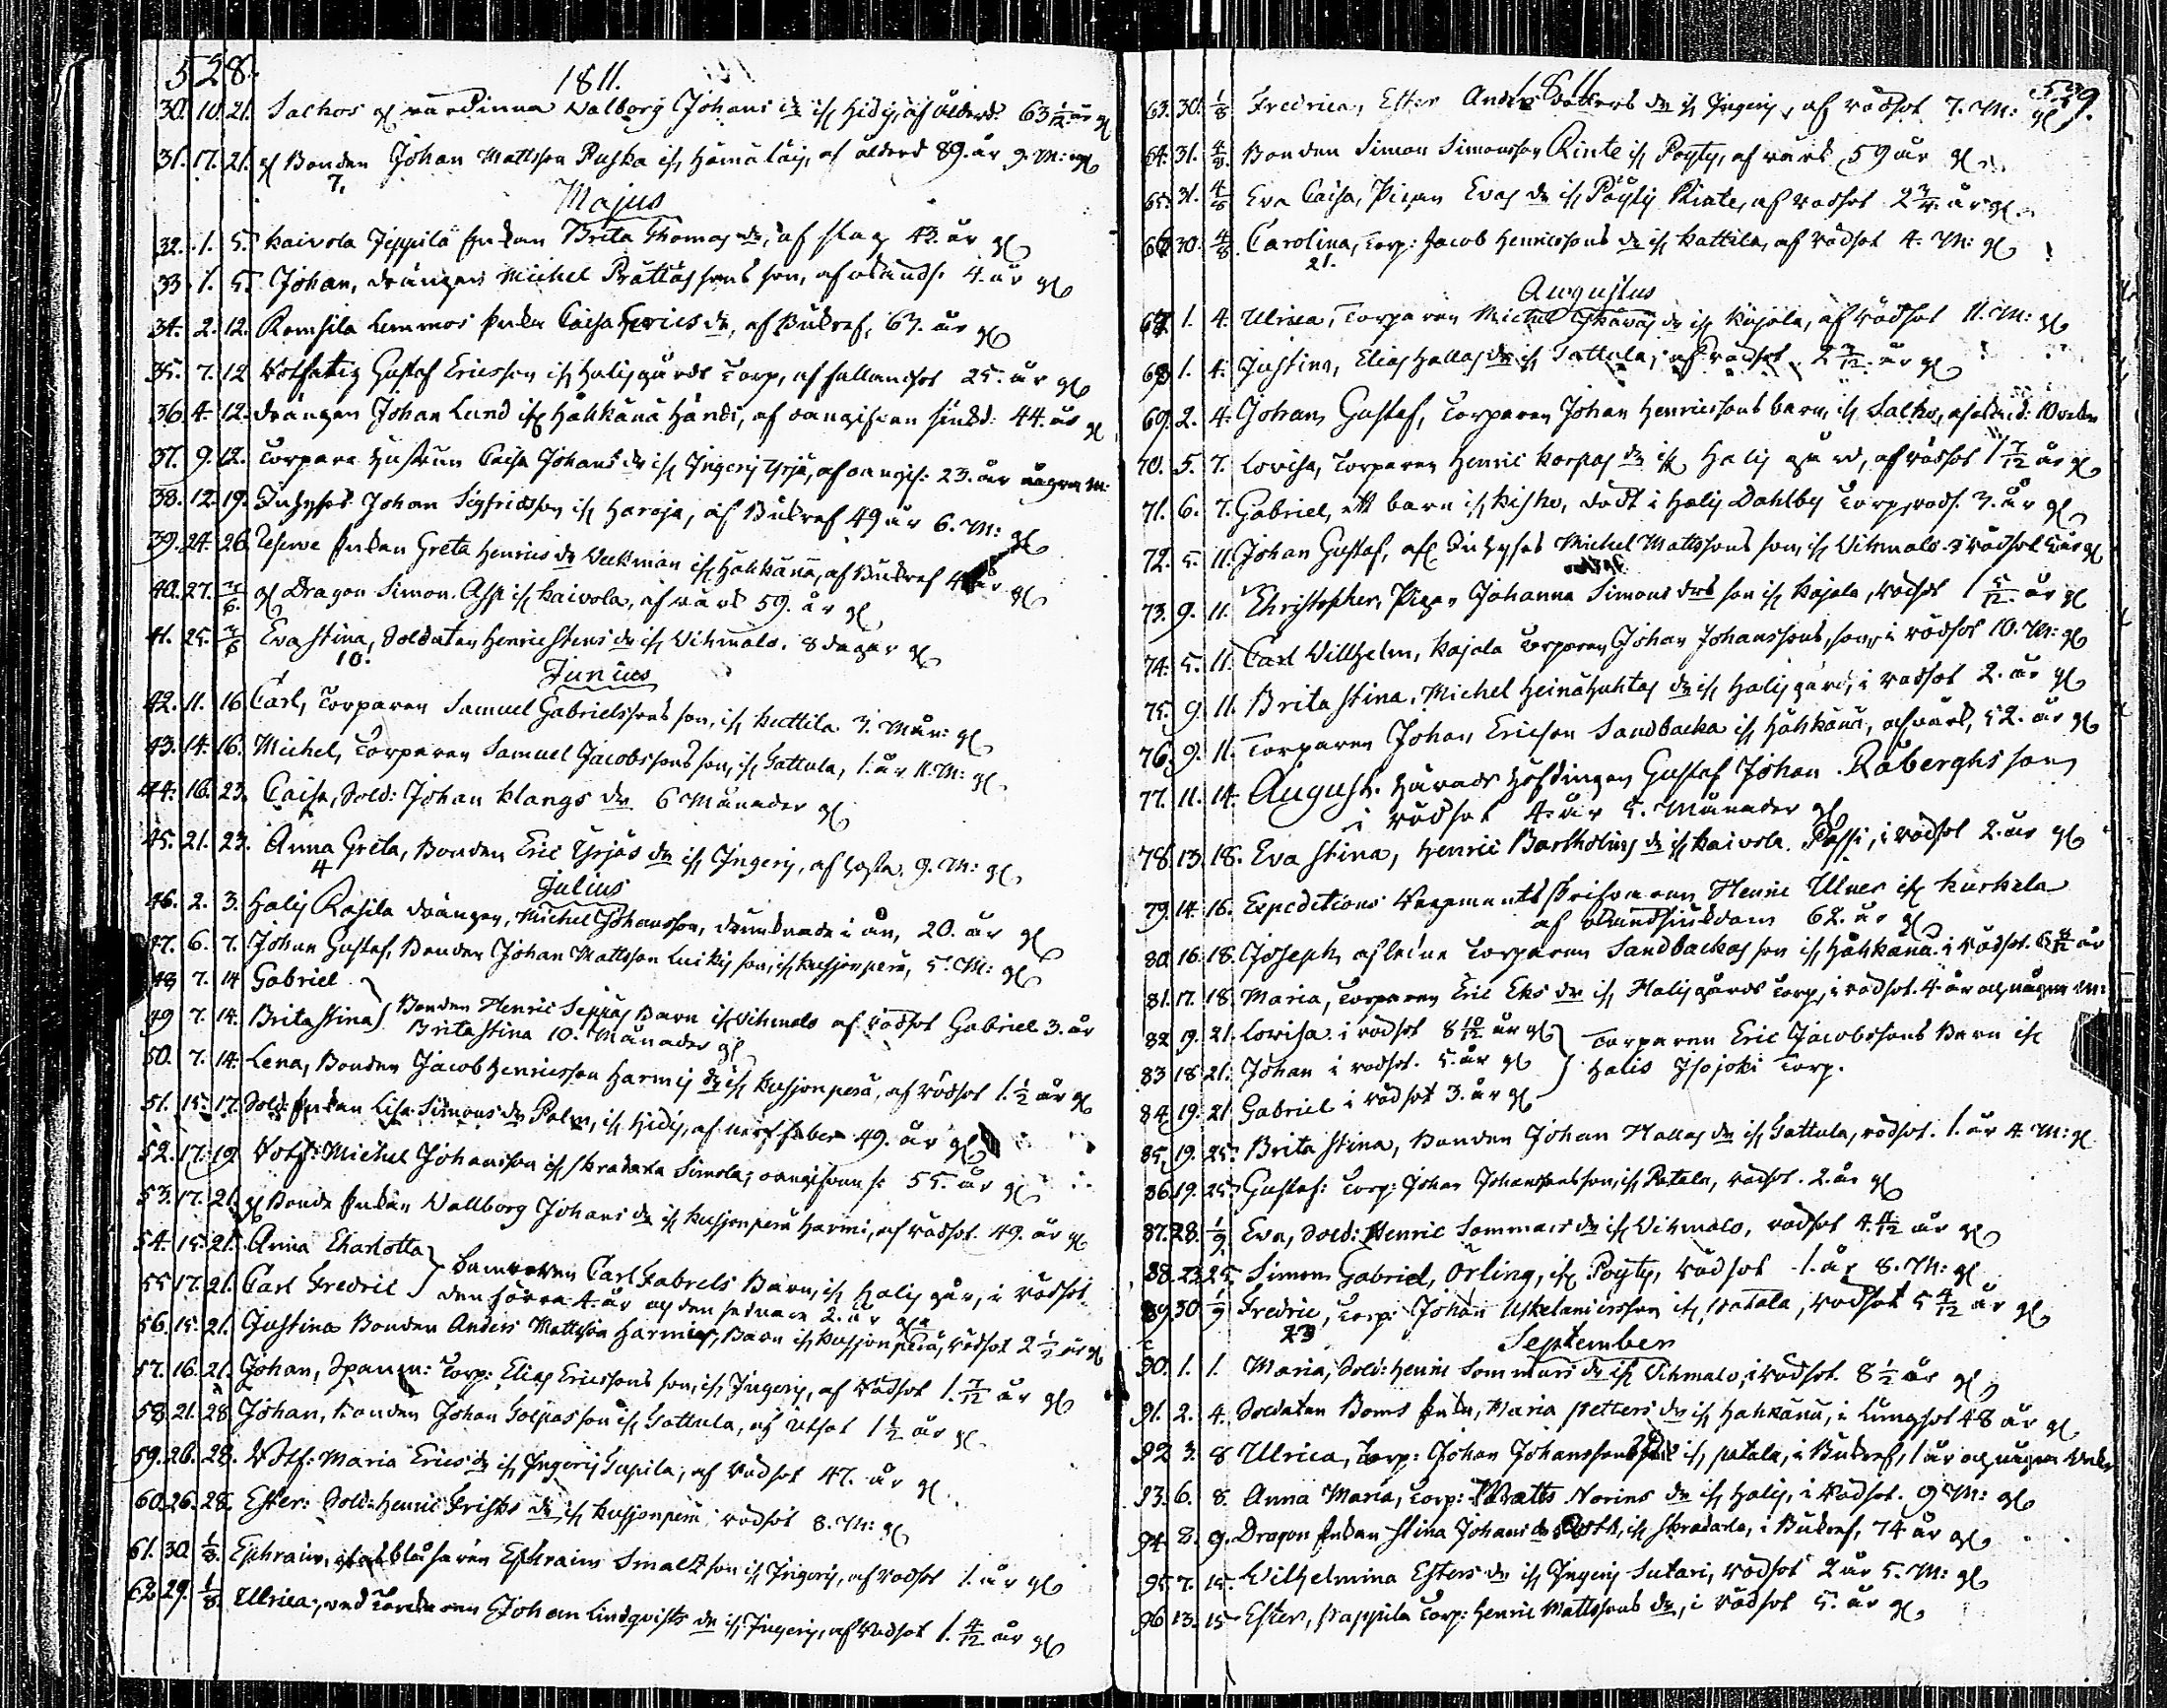 528.
1811.
30. 10. 21. Salkos gl värdinna Walborg Johans dr ifr Hidis, af ålderd. 63 1/12 år gl
31. 17. 21. gl Bonden Johan Mattsson Puska ifr Hämäläis, af ålderd 89. år 9. M: gl
7.
Majus
32. 1. 5. Kaivola Jeppilä Enkan Brita Thomas dr, af slag 43. år gl
33. 1. 5. Johan, drängen Michel Prättäs sons son, af okänds. 4. år gl
34. 2. 12. Remsilä Lemmos Enkan Caisa Erics dr, af Bukref, 67. år gl
35. 7. 12. Rotfattig Gustaf Ericsson ifr Halis gårds Torp, af fallandsot 25. år gl
36. 4. 12. drängen Johan Lund ifr Hähkänä Händi, af 44. år gl
37. 9. 12. Torpare Hustrun Caisa Johans dr ifr Ingeris Yrjä, af 23. år några M:
38. 12. 19. Inhyses Johan Sigfridsson ifr Haroja, af Bukref 49 år 6. M: gl
39. 24. 26. Enkan Greta Henrics dr Weckman ifr Hähkänä, af Bukref år gl
40. 27. 3/6. gl Dragon Simon Asp ifr Kaivola, af värk 59. år gl
41. 25. 3/6 Eva Stina, Soldaten Henric Stens dr ifr Vihmalo. 8 dagar gl
10.
Junius
42. 11. 16 Carl, Torparen Samuel Gabrielssons son, ifr Kuttila 3. Mån: gl
43. 14. 16. Michel, Torparen Samuel Jacobssons son, ifr Gattula, 1. år 11. M: gl
44. 16. 23. Caisa, Sold: Johan Klangs dr 6 Månader gl
45. 21. 23. Anna Greta, Bonden Eric Yrjäs dr ifr Ingeris, af hosta. 9. M: gl
4
Julius
46. 2. 3. Halis Rasila drängen, Michel Johansson, drunknade i ån, 20. år gl
47. 6. 7. Johan Gustaf, Bonden Johan Mattsson Luikis son, ifr Kusjonperä, 5. M: gl
48 7. 14 Gabriel
49 7. 14. Brita Stina Bonden Henric Seppäs Barn ifr Vihmalo af Rödsot Gabriel 3. år
Brita Stina 10. Månader gl
50. 7. 14. Lena, Bonden Jacob Henricsson Harmis dr ifr Kusjonperä, af Rödsot 1. 1/2 år gl
51. 15. 17. Sold: Enkan Lisa Simons dr Palm, ifr Hidis, af nerffeber 49. år gl
52. 17. 19 Rotf: Michel Johansson ifr Skradarla Simola, 55. år gl
53. 17. 21. gl Bonde Enkan Wallborg Johans dr ifr Kusjonperä Harmi, af rödsot. 49. år gl
54. 15. 21. Anna Charlotta
55 17. 21. Carl Fredric Carl Gabriels Barn, ifr Halis går, i Rödsot
den förra 4. år og den sednare 2. år gl
56. 15. 21. Justina Bonden Anders Mattsson Harmis, Barn ifr Kusjonperä, rödsot 2 1/2 år gl
57. 16. 21. Johan, Spanm: Torp: Elias Ericssons son, ifr Ingeris, af Rödsot 1. 7/12 år gl
58. 21. 28 Johan, Bonden Johan Golpas son ifr Gattula, af Utsot 1 1/2 år gl
59. 26. 28. Rotf: Maria Erics dr ifr Ingeris Supila, af Rödsot 47. år gl
60. 26. 28. Ester: Sold: Henric Frisks dr ifr Kusjonperä rödsot 8. M: gl
61. 30. 1/8. Ephraim, glasblåsaren Ephraim Smaltz son ifr Ingeris, af Rödsot 1. år gl
62. 29. 1/8. Ulrica, Johan Lindqvists dr ifr Ingeris, af Rödsot 1. 4/12 år gl
1811.
529.
63. 30. 1/8 Fredrica, Ester Anders dotters dr ifr Ingeris, af rödsot 7. M: gl
64. 31. 4/8. Bonden Simon Simonsson Rinte ifr Poyty, af värk 59 år gl
65. 31. 4/8 Eva Caisa, Pigan Evas dr ifr Pöytis Rinte, af rödsot 2 3/4. år gl
66 30. 4/8. Carolina, Torp: Jacob Henricssons dr ifr Kattila, af rödsot 4. M: gl
21.
Augustus
67 1. 4. Ulrica, Torparen Michel dr ifr Kajala, af rödsot 11. M: gl
68 1. 4. Justina, Elias Hallas dr ifr Gattula, af rödsot 2 7/12. år gl
69. 2. 4. Johan Gustaf, Torparen Johan Henricssons barn, ifr Salko, af okänd: 10 vekor
70. 5. 7. Lovisa, Torparen Henric Korpas dr ifr Halis gård, af rödsot 1 7/12 år gl
71. 6. 7. Gabriel, ett barn ifr Kisko, dödt i Halis Dahlby Torp, röds. 3. år gl
72. 5. 11. Johan Gustaf, afl: Inhyses Michel Mattssons son, ifr Vihmalo. i rödsot år gl
73. 9. 11. Christopher, Pigan Johanna Simons drs son ifr Kajala, rödsot 1 5/12. år gl
74. 5. 11. Carl Willhelm, Kajala Torparen Johan Johanssons, son, i rödsot 10. M: gl
75. 9. 11. Brita Stina, Michel Heinähuhtas dr ifr Halis gård, i rödsot 2. år gl
76. 9. 11. Torparen Johan Ericsson Sandbacka ifr Hähkänä, af värk, 52. år gl
77. 11. 14. August. Härads Höfdingen Gustaf Johan Råberghs son,
i rödsot 4. år 5. Månader gl
78. 13. 18. Eva Stina, Henric Bartholins dr ifr Kaivola Passi, i rödsot 2. år gl
79. 14. 16. Expeditions Henric Ulner ifr Kurkela
af 62. år gl
80. 16. 18. Joseph, afledne Torparen Sandbackas son ifr Hähkänä. i rödsot. år
81. 17. 18. Maria, Torparen Eric Eks dr ifr Halis gårds Torp, i rödsot. 4. år og några M:
82 19. 21. Lovisa i rödsot 8 10/12 år gl Torparen Eric Jacobssons Barn ifr
83 18 21. Johan i rödsot. 5. år gl Halis Isojoki Torp.
84. 19. 21 Gabriel i rödsot 3. år gl
85. 19. 25. Brita Stina, Bonden Johan Hallas dr ifr Gattula, rödsot. 1. år 4. M: gl
86. 19. 25. Gustaf: Torp: Johan Johanssons son, ifr Patala, rödsot. 2. år gl
87. 28. 1/9 Eva, Sold: Henric Sommars dr ifr Vihmalo, rödsot 4. år gl
88. 23 25. Simon Gabriel, Örling, ifr Poyty, rödsot 1. år 8. M: gl
89. 30 1/9 Fredric, Torp: Johan ifr Patala, rödsot 5 4/12 år gl
23
September
90. 1. 1. Maria, Sold: Henric Sommars dr ifr Vihmalo, i rödsot. 8 1/2 år gl
91. 2. 4. Soldaten Boms Enka, Maria Petters dr ifr Hahkänä, i Lungsot 48 år gl
92 3. 8 Ulrica, Torp: Johan Johanssons ifr Patala, i Bukref, 1 år og några
93. 6. 8. Anna Maria, Torp: Matts Norins dr ifr Halis, i rödsot. 9 M: gl
94. 8. 9. Dragon Enkan Stina Johans dr ifr Skradarla, i Bukref, 74 år gl
95. 7. 15. Wilhelmina Esters dr ifr Ingeris Sutari, rödsot 2 år 5. M: gl
96 13. 15 Ester, Pappila Torp: Henric Mattssons dr, i rödsot 5. år gl